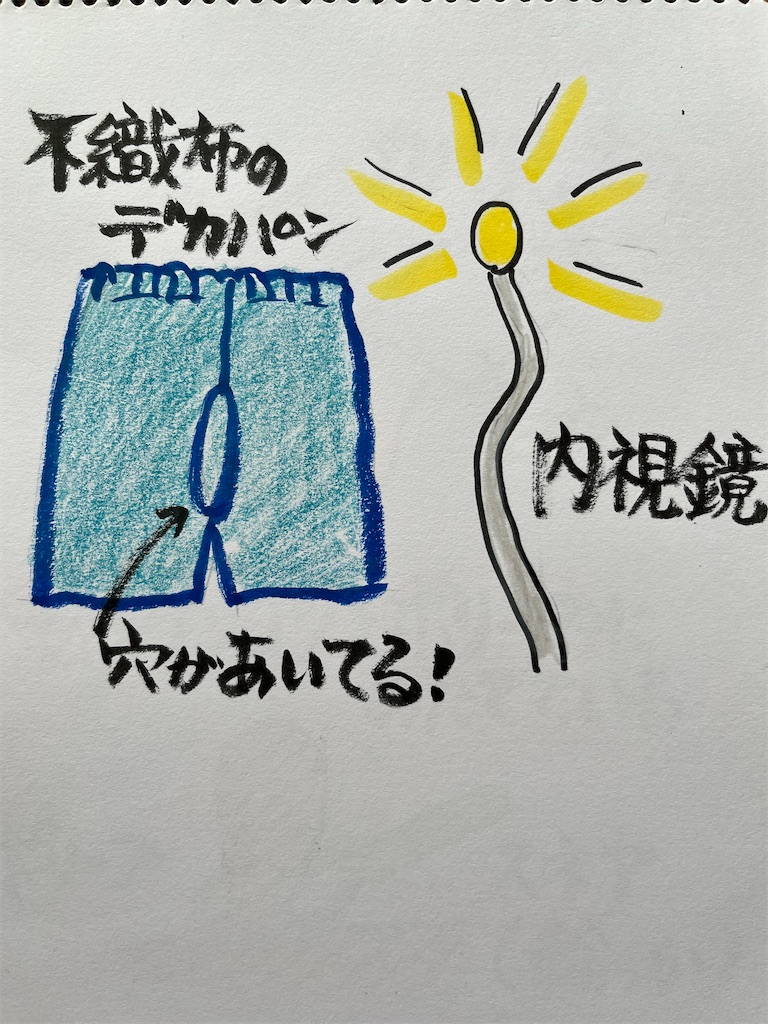 不織布の
デカパン
内視鏡
穴があいてる!